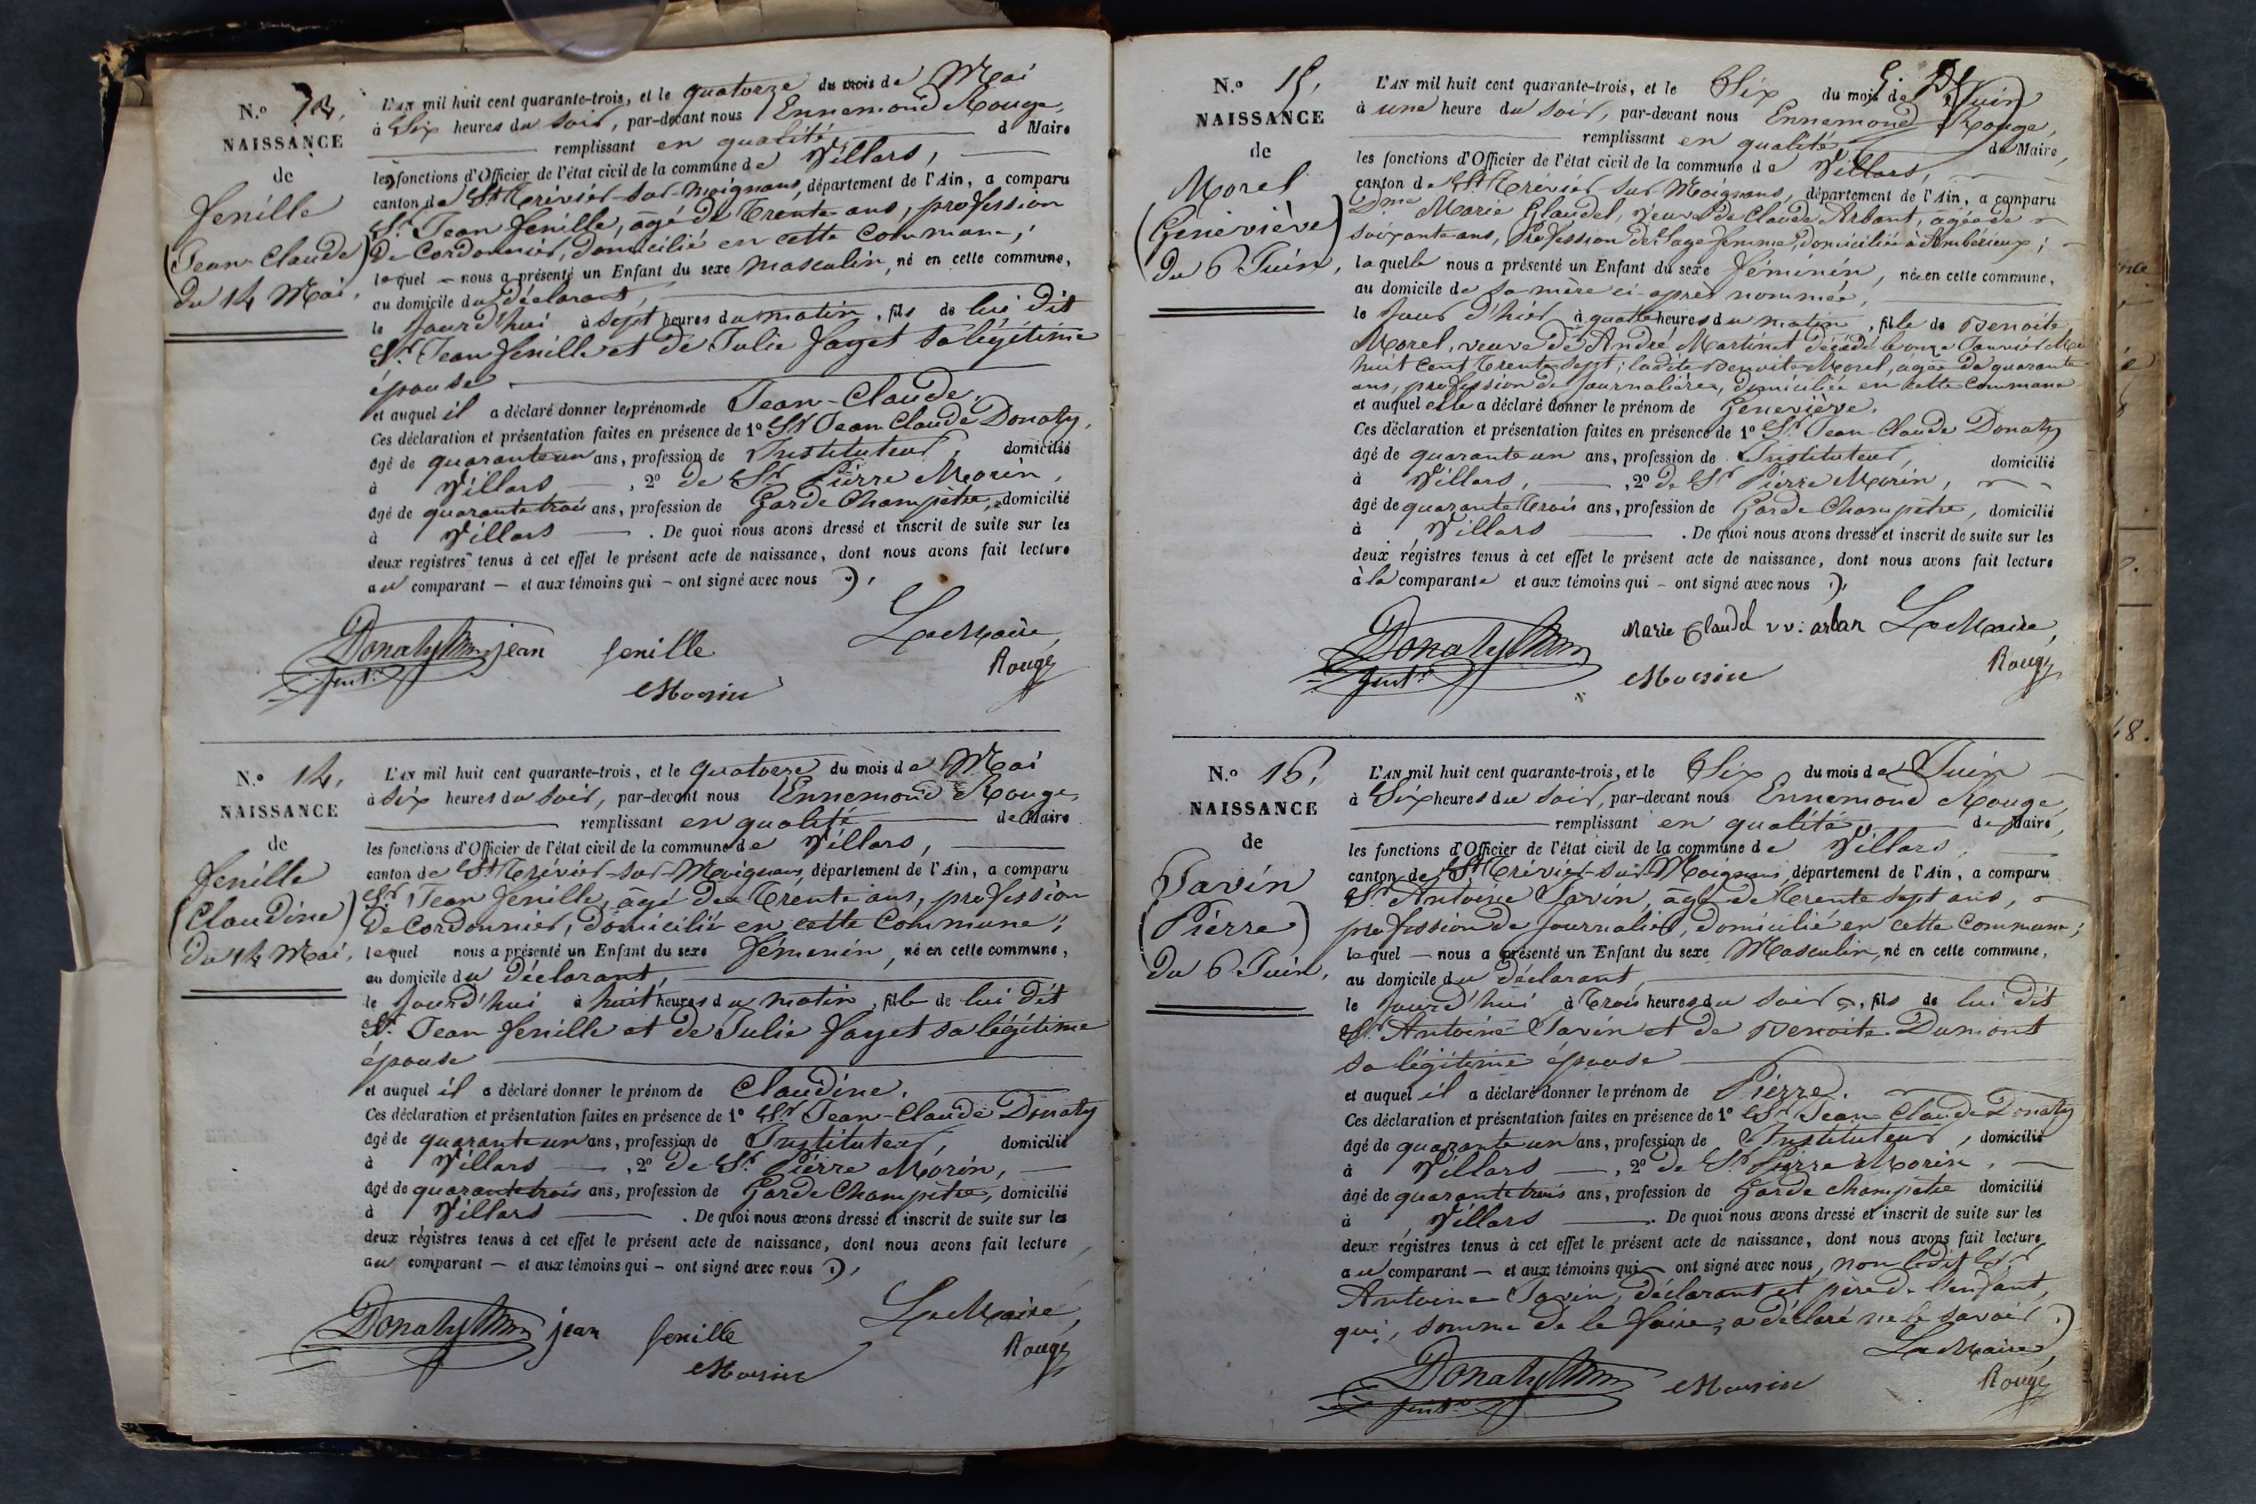 N.º 13,
NAISSANCE
de
Fenille
(Jean-Claude)
du 14 Mai,
L'AN mil huit cent quarante-trois, et le quatorze du mois de Mai
à Six heures du Soir, par-devant nous Ennemond Rouge,
remplissant en qualité d Maire
les fonctions d'Officier de l'état civil de la commune de Villars,
canton de St Trévier-sur-Moignans, département de l'Ain, a comparu
Sr. Jean Fenille, âgé de Trente ans, profession
de Cordonnier, domicilié en cette commune,
lequel nous a présenté un Enfant du sexe masculin, né en cette commune,
au domicile du déclarant,
le jourd'hui à sept heures du matin, fils de lui dit
Sr. Jean Fenille et de Julie Fayet sa légitime
épouse
et auquel il a déclaré donner les prénoms de Jean-Claude.
Ces déclaration et présentation faites en présence de 1º Sr Jean Claude Donaty,
âgé de quarante un ans, profession de Instituteur, domicilié
à Villars, 2º de Sr Pierre Morin,
âgé de quarante trois ans, profession de Garde Champêtre, domicilié
à Villars. De quoi nous avons dressé et inscrit de suite sur les
deux registres tenus à cet effet le présent acte de naissance, dont nous avons fait lecture
au comparant — et aux témoins qui — ont signé avec nous
Donaty jean fenille Le Maire,
Rouge
Morin
N.º 14,
NAISSANCE
de
Fenille
(Claudine)
du 14 Mai,
L'AN mil huit cent quarante-trois, et le quatorze du mois de Mai
à Six heures du Soir, par-devant nous Ennemond Rouge,
remplissant en qualité de Maire
les fonctions d'Officier de l'état civil de la commune de Villars,
canton de St Trévier-sur-Moignans, département de l'Ain, a comparu
Sr. Jean Fenille, âgé de Trente ans, profession
de Cordonnier, domicilié en cette commune;
lequel nous a présenté un Enfant du sexe Féminin, né en cette commune,
au domicile du Déclarant,
le jourd'hui à huit heures du matin, fille de lui dit
Sr. Jean Fenille et de Julie Fayet sa légitime
épouse
et auquel il a déclaré donner le prénom de Claudine.
Ces déclaration et présentation faites en présence de 1º Sr Jean-Claude Donaty
âgé de quarante un ans, profession de Instituteur, domicilié
à Villars, 2º de Sr. Pierre Morin,
âgé de quarante trois ans, profession de Garde Champêtre, domicilié
à Villars. De quoi nous avons dressé et inscrit de suite sur les
deux régistres tenus à cet effet le présent acte de naissance, dont nous avons fait lecture
au comparant — et aux témoins qui — ont signé avec nous
Donaty jean fenille Le Maire,
Rouge
Morin
N.º 15,
NAISSANCE
de
Morel
(Geneviève)
du 6 Juin,
L'AN mil huit cent quarante-trois, et le Six du mois de Juin
à une heure du soir, par-devant nous Ennemond Rouge,
remplissant en qualité de Maire,
les fonctions d'Officier de l'état civil de la commune de Villars,
canton de St Trévier-sur Moignans, département de l'Ain, a comparu
Dme Marie Claudel, veuve de Claude Arbant, âgée de
soixante ans, Profession de Sage femme, domiciliée à Ambérieux;
laquelle nous a présenté un Enfant du sexe Féminin, née en cette commune,
au domicile de sa mère ci-après nommée,
le jour d'hier à quatre heures du matin, fille de Benoite
Morel, veuve de André Martinet décédé le onze Janvier Mil
huit cent Trente sept; ladite Benoite Morel, âgée de quarante
ans, profession de journalière, domiciliée en cette commune
et auquel elle a déclaré donner le prénom de Geneviève.
Ces déclaration et présentation faites en présence de 1º Sr. Jean-Claude Donaty
âgé de quarante un ans, profession de Instituteur, domicilié
à Villars, 2º de Sr Pierre Morin,
âgé de quarante Trois ans, profession de Garde Champêtre, domicilié
à Villars. De quoi nous avons dressé et inscrit de suite sur les
deux régistres tenus à cet effet le présent acte de naissance, dont nous avons fait lecture
à la comparante et aux témoins qui — ont signé avec nous
Donaty Marie Claudel vv: arban Le Maire,
Rouge
Morin
N.º 16,
NAISSANCE
de
Savin
(Pierre)
du 6 Juin,
L'AN mil huit cent quarante-trois, et le Six du mois de Juin
à Six heures du soir, par-devant nous Ennemond Rouge,
remplissant en qualité de Maire,
les fonctions d'Officier de l'état civil de la commune de Villars,
canton de St Trévier-sur Moignans, département de l'Ain, a comparu
Sr Antoine Savin, âgé de Trente sept ans,
profession de journalier, domicilié en cette commune;
lequel — nous a présenté un Enfant du sexe Masculin, né en cette commune,
au domicile du déclarant,
le jourd'hui à trois heures du soir, fils de lui dit
Sr. Antoine Savin et de Benoite Dumont
sa légitime épouse
et auquel il a déclaré donner le prénom de Pierre.
Ces déclaration et présentation faites en présence de 1º Sr Jean Claude Donaty
âgé de quarante un ans, profession de Instituteur, domicilié
à Villars, 2º de Sr Pierre Morin,
âgé de quarante trois ans, profession de Garde champêtre domicilié
à Villars. De quoi nous avons dressé et inscrit de suite sur les
deux régistres tenus à cet effet le présent acte de naissance, dont nous avons fait lecture
au comparant — et aux témoins qui — ont signé avec nous, non ledit Sr
Antoine Savin, déclarant et père de l'enfant,
qui, sommé de le faire, a déclaré ne le savoir
Le Maire,
Donaty Morin Rouge